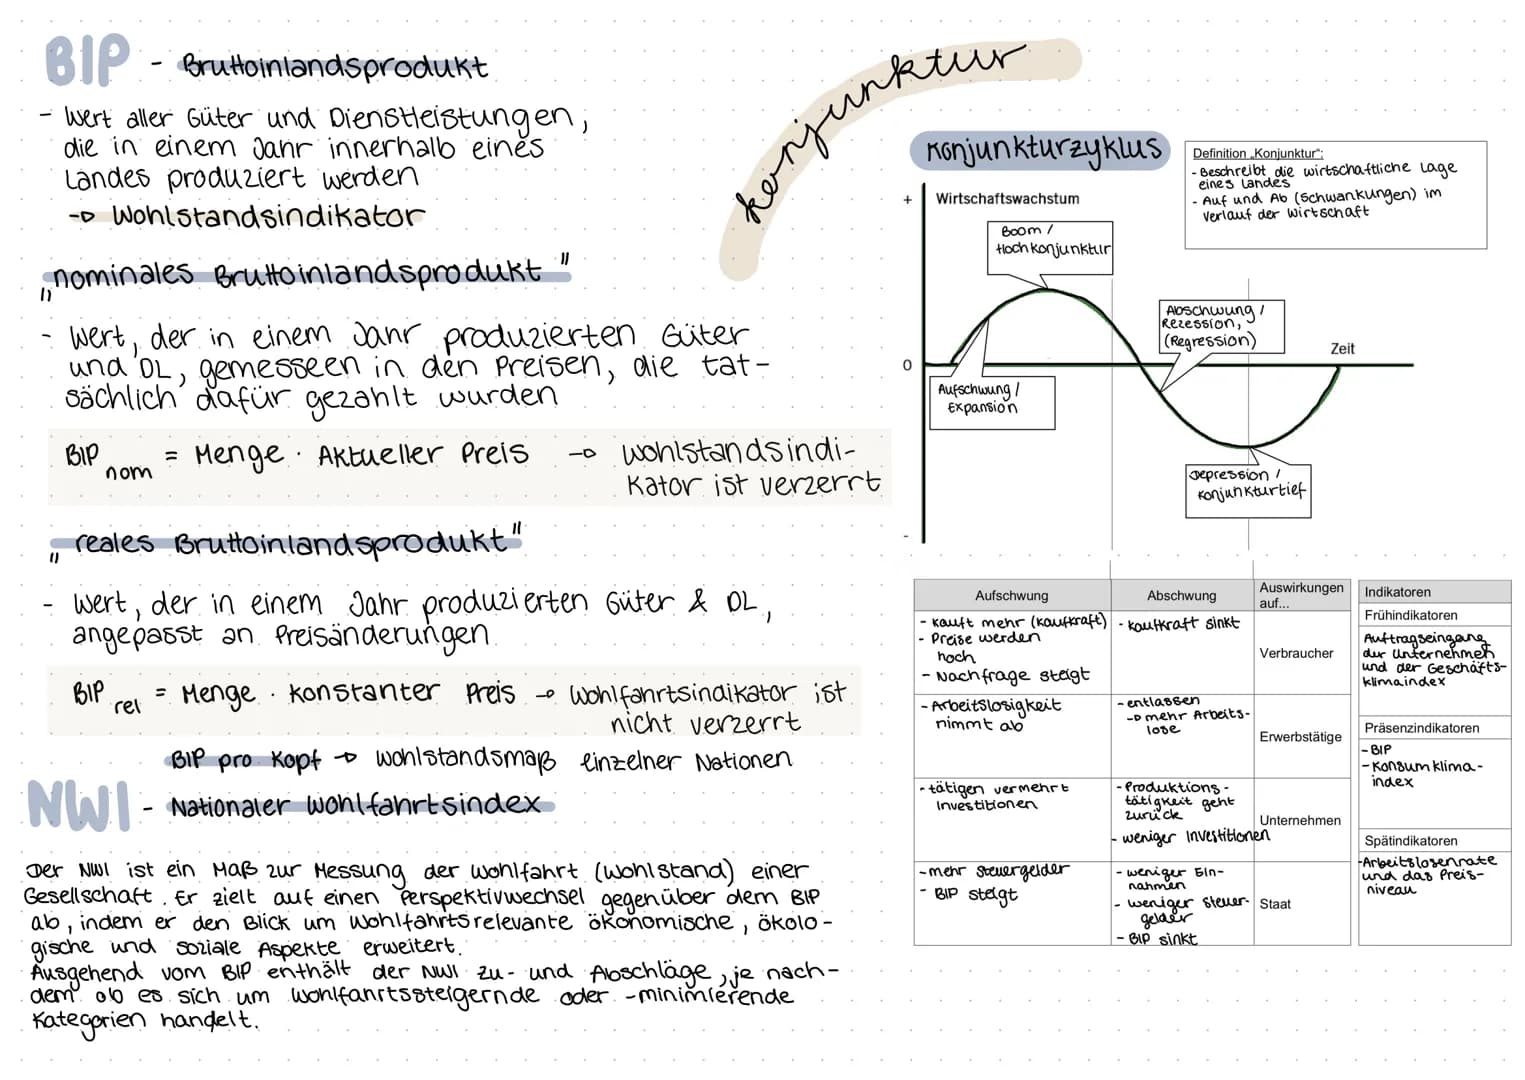 BIP - Bruttoinlandsprodukt
- Wert aller Güter und Dienstleistungen,
die in einem Jahr innerhalb eines
Landes produziert werden
→ Wohlstandsindikator
„nominales Bruttoinlandsprodukt"
- Wert, der in einem Jahr produzierten Güter
und DL, gemesseen in den Preisen, die tat-
sächlich dafür gezahlt wurden
BIP nom = Menge · Aktueller Preis → Wohlstandsindi-
kator ist verzerrt
„reales Bruttoinlandsprodukt"
- Wert, der in einem Jahr produzierten Güter & DL,
angepasst an Preisänderungen
BIP rel = Menge · Konstanter Preis → Wohlfahrtsindikator ist
nicht verzerrt
BIP pro Kopf → Wohlstandsmaß einzelner Nationen
NWI - Nationaler Wohlfahrtsindex
Der NWI ist ein Maß zur Messung der Wohlfahrt (Wohlstand) einer
Gesellschaft. Er zielt auf einen Perspektivwechsel gegenüber dem BIP
ab, indem er den Blick um wohlfahrtsrelevante ökonomische, ökolo-
gische und soziale Aspekte erweitert.
Ausgehend vom BIP enthält der NWI Zu- und Abschläge, je nach-
dem ob es sich um wohlfahrtssteigernde oder -minimierende
Kategorien handelt.
Konjunktur
Konjunkturzyklus
Definition „Konjunktur":
- Beschreibt die wirtschaftliche Lage
eines Landes
- Auf und Ab (Schwankungen) im
Verlauf der Wirtschaft
+
Wirtschaftswachstum
Boom /
Hochkonjunktur
Abschwung /
Rezession,
(Regression)
Zeit
0
Aufschwung /
Expansion
Depression /
Konjunkturtief
-
Aufschwung
Abschwung
Auswirkungen
auf...
- kauft mehr (Kaufkraft)
- Preise werden
hoch
- Nachfrage steigt
- Kaufkraft sinkt
Verbraucher
- Arbeitslosigkeit
nimmt ab
- entlassen
→ mehr Arbeits-
lose
Erwerbstätige
- tätigen vermehrt
Investitionen
- Produktions-
tätigkeit geht
zurück
- weniger Investitionen
Unternehmen
- mehr Steuergelder
- BIP steigt
- weniger Ein-
nahmen
- weniger Steuer-
gelder
- BIP sinkt
Staat
Indikatoren
Frühindikatoren
Auftragseingang
der Unternehmen
und der Geschäfts-
klimaindex
Präsenzindikatoren
- BIP
- Konsumklima-
index
Spätindikatoren
- Arbeitslosenrate
und das Preis-
niveau